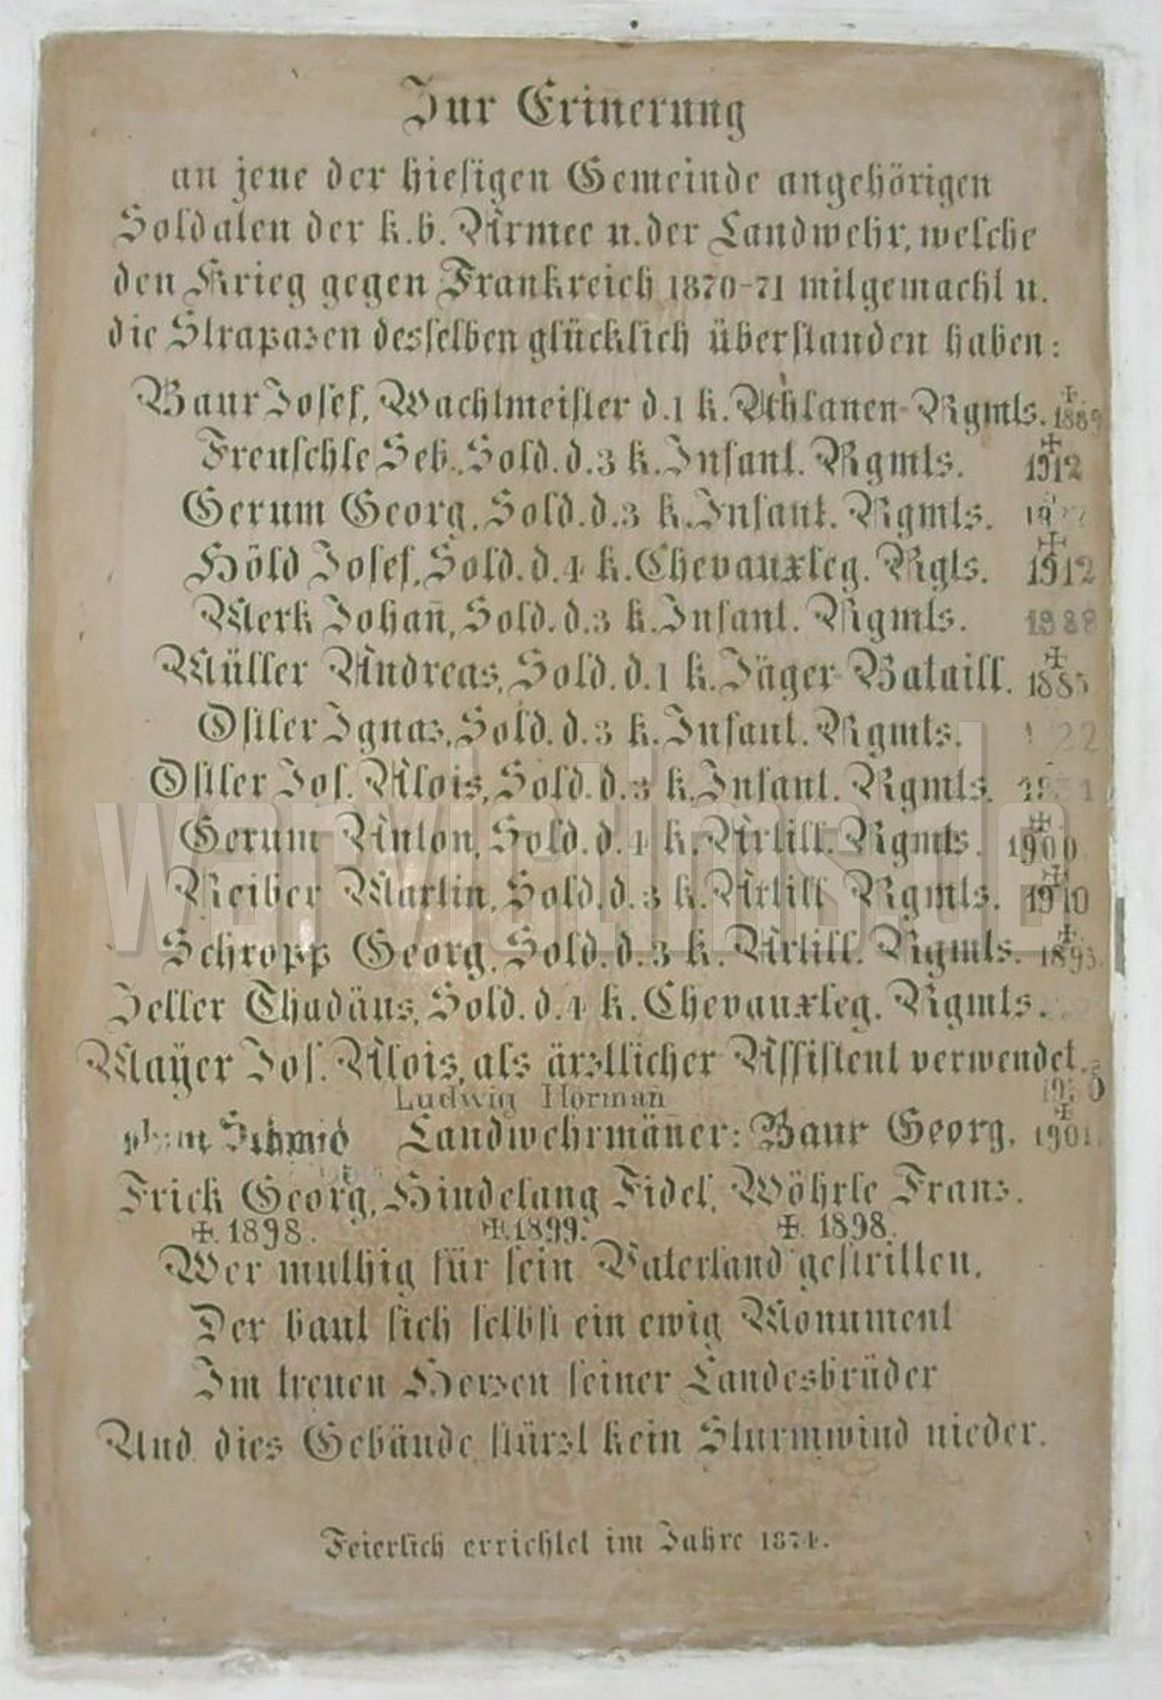 Zur Erinerung
an jene der hiesigen Gemeinde angehörigen
Soldaten der k. b. Armee u. der Landwehr, welche
den Krieg gegen Frankreich 1870-71 mitgemacht u.
die Strapazen desselben glücklich überstanden haben:
Baur Josef, Wachtmeister d. 1 k. Uhlanen-Rgmts. ✠ 1889
Freuschle Seb., Sold. d. 3 k. Infant. Rgmts. ✠ 1912
Gerum Georg, Sold. d. 3 k. Infant. Rgmts.
Höld Josef, Sold. d. 4 k. Chevauxleg. Rgts. ✠ 1912
Merk Johan̄, Sold. d. 3 k. Infant. Rgmts. 1988
Müller Andreas, Sold. d. 1 k. Jäger-Bataill. ✠ 1885
Ostler Ignaz, Sold. d. 3 k. Infant. Rgmts.
Ostler Jos. Alois, Sold. d. 3 k. Infant. Rgmts.
Gerum Anton, Sold. d. 4 k. Artill. Rgmts. ✠ 1900
Reiber Martin, Sold. d. 3 k. Artill Rgmts. ✠ 1910
Schropp Georg, Sold. d. 3 k. Artill. Rgmts. ✠ 1893
Zeller Thadäus, Sold. d. 4 k. Chevauxleg. Rgmts.
Mayer Jos. Alois, als ärztlicher Assistent verwendet.
Ludwig Horman̄
Schmid Landwehrmäner: Baur Georg, ✠ 1901.
Frick Georg, Hindelang Fidel, Wöhrle Franz.
✠. 1898. ✠. 1899. ✠. 1898.
Wer muthig für sein Vaterland gestritten,
Der baut sich selbst ein ewig Monument
Im treuen Herzen seiner Landesbrüder
Und dies Gebäude stürzt kein Sturmwind nieder.
Feierlich errichtet im Jahre 1874.
warvictims.de